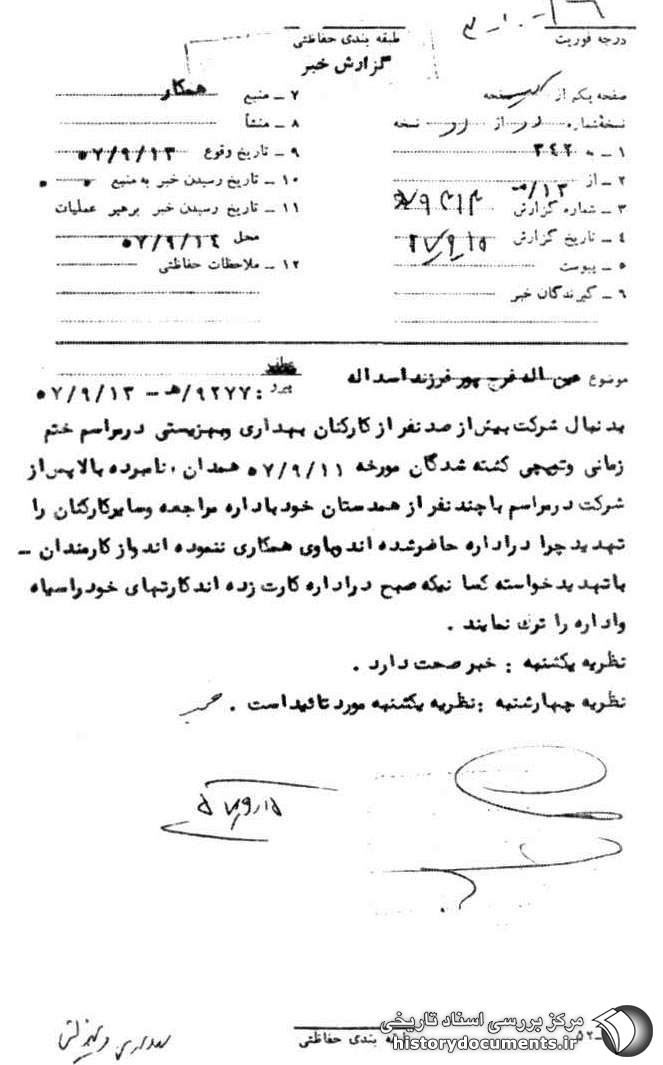 درجه فوریت
طبقه بندی حفاظتی
گزارش خبر
صفحه یکم از صفحه
نسخه شماره از نسخه
۱ ــ به ۳۴۲
۲ ــ از ۱۳/هـ
۳ ــ شماره گزارش
۴ ــ تاریخ گزارش ۵۷/۹/۱۵
۵ ــ پیوست
۶ ــ گیرندگان خبر
۷ ــ منبع همکار
۸ ــ منشأ
۹ ــ تاریخ وقوع ۵۷/۹/۱۳
۱۰ ــ تاریخ رسیدن خبر به منبع
۱۱ ــ تاریخ رسیدن خبر برهبر عملیات
محل ۵۷/۹/۱۴
۱۲ ــ ملاحظات حفاظتی
موضوع عین اله فرج پور فرزند اسداله
عطف
پیرو : ۹۲۷۷/هـ – ۵۷/۹/۱۳
بدنبال شرکت بیش از صد نفر از کارکنان بهداری وبهزیستی در مراسم ختم
زمانی وتیچی کشته شدگان مورخه ۵۷/۹/۱۱ همدان ، نامبرده بالا پس از
شرکت در مراسم با چند نفر از همدستان خود باداره مراجعه وسایر کارکنان را
تهدید چرا در اداره حاضر شده اند وباوی همکاری ننموده اند و از کارمندان –
با تهدید خواسته کسا نیکه صبح در اداره کارت زده اند کارتهای خود را سیاه
واداره را ترک نمایند .
نظریه یکشنبه : خبر صحت دارد .
نظریه چهارشنبه : نظریه یکشنبه مورد تائید است .
طبقه بندی حفاظتی
مرکز بررسی اسناد تاریخی
historydocuments.ir